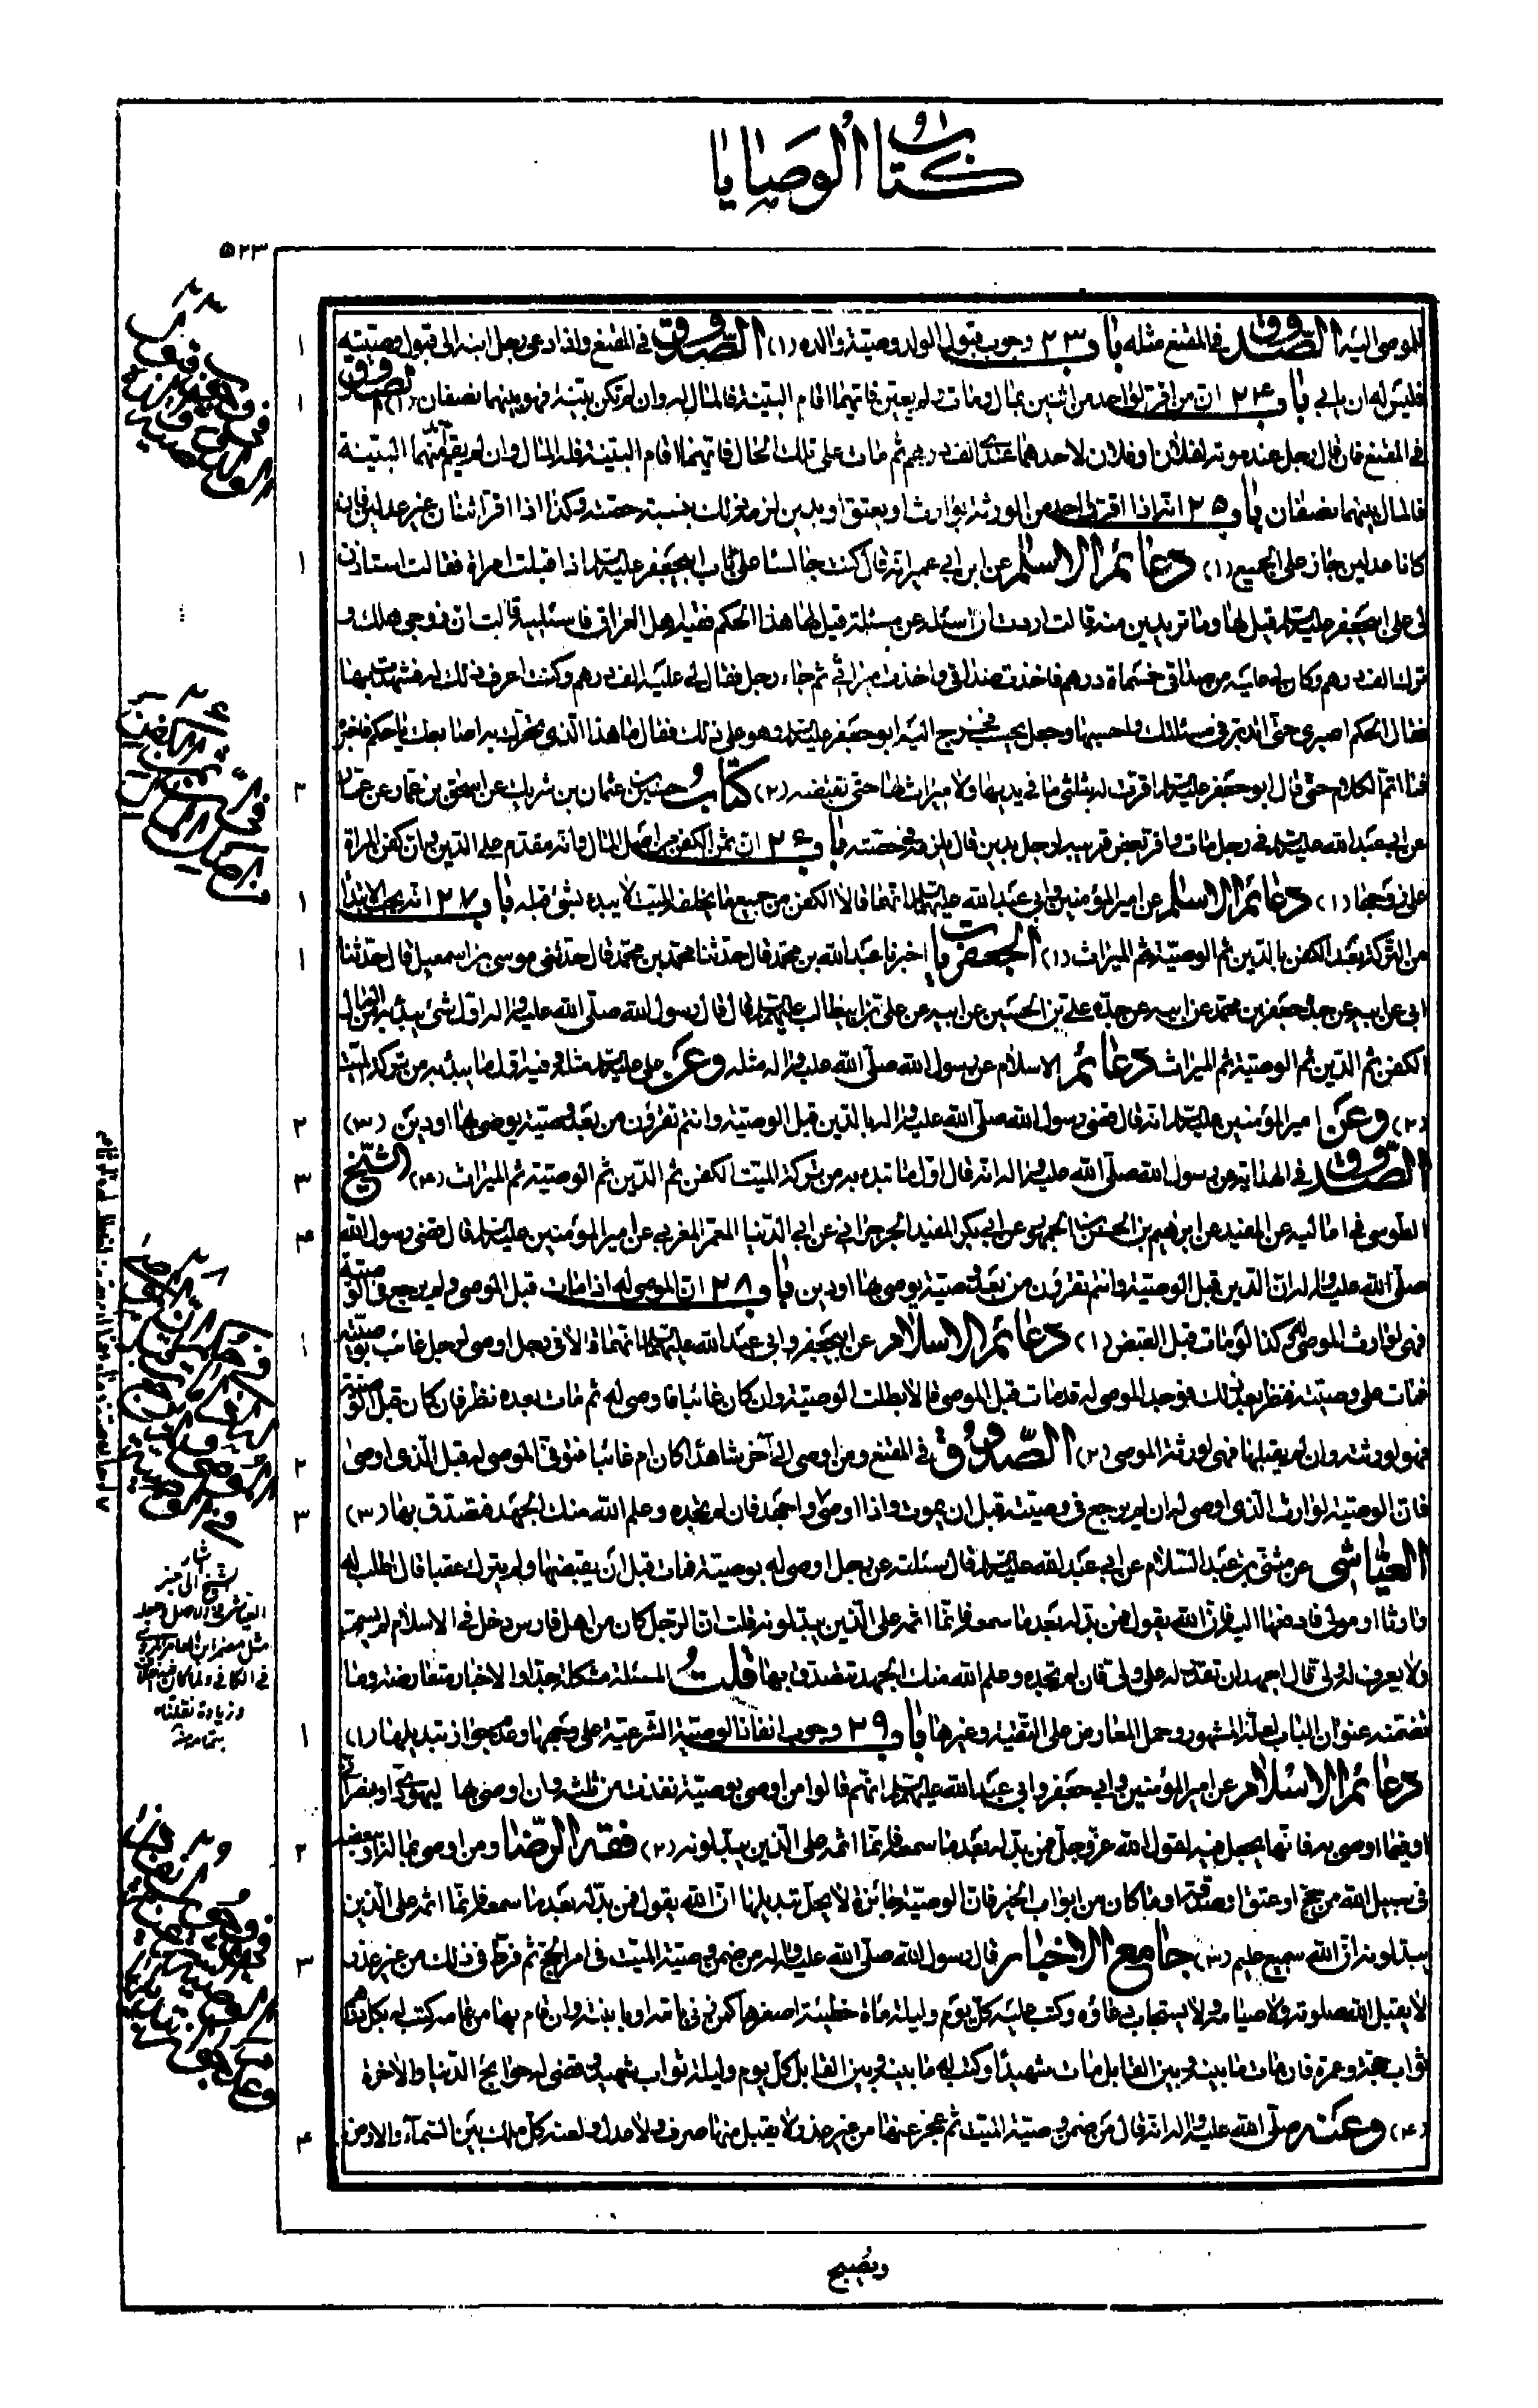 كتاب الوصايا
٥٢٣
للموصى اليه الصدوق في المقنع مثله باب ٢٣ وجوب قبول الولد وصية والده (١) الصدوق في المقنع واذا دعى رجل ابنه الى قبول وصيته
فليس له ان يابى باب ٢٤ ان من اقر لواحد من اثنين بمال ومات ولم يعين فايهما اقام البينة فالمال له وان لم تكن بينة فهو بينهما نصفان (١) الصدوق
في المقنع فان قال رجل عند موته لفلان وفلان لاحدهما عندي الف درهم ثم مات على تلك الحال فايهما اقام البينة فله المال وان لم يقم منهما البينة
فالمال بينهما نصفان باب ٢٥ انه اذا اقر واحد من الورثة بوارث او بعتق او بدين لزمه ذلك بنسبة حصته وكذا اذا اقر اثنان غير عدلين فان
كانا عدلين جاز على الجميع (١) دعائم الاسلام عن ابن ابي عمير انه قال كنت جالسا على باب ابي جعفر عليه السلم اذا قبلت امراة فقالت استاذن
لي على ابي جعفر عليه السلم قيل لها وما تريدين منه قالت اردت ان اسئله عن مسئلة قيل لها هذا الحكم فقيه اهل العراق فاسئليه قالت ان زوجي هلك و
ترك الف درهم وكان لي عليه من صداقي خمسماة درهم فاخذت صداقي واخذت ميراثي ثم جاء رجل فقال لي عليه الف درهم وكنت اعرف ذلك له فشهدت بها
فقال الحكم اصبري حتى اتدبر في مسئلتك واحسبها وجعل يحسب فخرج اليه ابو جعفر عليه السلم وهو على ذلك فقال ما هذا الذي تحرك به اصابعك يا حكم فاخبره
فما اتم الكلام حتى قال ابو جعفر عليه السلم اقرت له بثلثي ما في يديها ولا ميراث لها حتى تقضيه (٢) كتاب حسين بن عثمان بن شريك عن اسحق بن عمار عن
عن ابي عبد الله عليه السلم في رجل مات واقر بعض ورثته لرجل بدين قال يلزمه في حصته باب ٢٦ ان ثمن الكفن من اصل المال وانه مقدم على الدين وان كفن المراة
على زوجها (١) دعائم الاسلام عن امير المؤمنين وابي عبد الله عليهما السلم انهما قالا الكفن من جميع ما يخلفه الميت لا يبدء بشئ قبله باب ٢٧ انه يجب الابتدا
من التركة بعد الكفن بالدين ثم الوصية ثم الميراث (١) الجعفريات اخبرنا عبد الله بن محمد قال حدثنا محمد بن محمد قال حدثني موسى بن اسمعيل قال حدثنا
ابي عن ابيه عن جده جعفر بن محمد عن ابيه عن جده علي بن الحسين عن ابيه عن علي بن ابي طالب عليهم السلم قال قال رسول الله صلى الله عليه واله اول شئ يبدء به من المال
الكفن ثم الدين ثم الوصية ثم الميراث دعائم الاسلام عن رسول الله صلى الله عليه واله مثله وعن علي عليه السلم مثله وفيه اول ما يبدء به من تركة الميت
(٢) وعن امير المؤمنين عليه السلم انه قال قضى رسول الله صلى الله عليه واله بالدين قبل الوصية وانتم تقرؤن من بعد وصية يوصى بها او دين (٣)
الصدوق في الهداية عن رسول الله صلى الله عليه واله انه قال اول ما تبدء به من تركة الميت الكفن ثم الدين ثم الوصية ثم الميراث (٤) الشيخ
الطوسي في اماليه عن المفيد عن ابرهيم بن الحسن بن الجمهور عن ابي بكر المفيد الجرجرائي عن ابي الدنيا المعمر المغربي عن امير المؤمنين عليه السلم قال قضى رسول الله
صلى الله عليه واله ان الدين قبل الوصية وانتم تقرؤن من بعد وصية يوصى بها او دين باب ٢٨ ان الموصى له اذا مات قبل الموصي ولم يرجع في الوصية
فهي لوارث الموصى له وكذا لو مات قبل القبض (١) دعائم الاسلام عن ابي جعفر وابي عبد الله عليهما السلم انهما قالا في رجل اوصى لرجل غائب بوصية
فمات على وصيته فنظر بعد ذلك فوجد الموصى له قد مات قبل الموصي قالا بطلت الوصية وان كان غائبا فاوصى له ثم مات بعده نظر فان كان قبل الوصية
فهو لورثته وان لم يقبلها فهي لورثة الموصي (٢) الصدوق في المقنع ومن اوصى الى آخر شاهدا كان ام غائبا فتوفي الموصى له قبل الذي اوصى
فان الوصية لوارث الذي اوصى له ان لم يرجع في وصيته قبل ان يموت واذا اوصى واجتهد فان لم تجده وعلم الله منك الجهد فتصدق بها (٣)
العياشي عن مثنى بن عبد السلام عن ابي عبد الله عليه السلم قال سئلته عن رجل اوصى له بوصية فمات قبل ان يقبضها ولم يترك عقبا قال اطلب له
وارثا او مولى فادفعها اليه فان الله يقول فمن بدله بعد ما سمعه فانما اثمه على الذين يبدلونه قلت ان الرجل كان من اهل فارس دخل في الاسلام لم يسم
ولا يعرف له ولي قال اجهد ان تقدر له على ولي فان لم تجده وعلم الله منك الجهد تتصدق بها قلت المسئلة مشكلة جدا والاخبار متعارضة وما
تضمنه عنوان الباب لعله المشهور وحمل المعارض على التقية وغيرها باب ٢٩ وجوب انفاذ الوصية الشرعية على وجهها وعدم جواز تبديلها (١)
دعائم الاسلام عن امير المؤمنين وابي جعفر وابي عبد الله عليهم السلم انهم قالوا من اوصى بوصية نفذت من ثلثه وان اوصى بها ليهودي او نصراني
او فيما اوصى به فانها يجعل فيه لقول الله عز وجل فمن بدله بعد ما سمعه فانما اثمه على الذين يبدلونه (٢) فقه الرضا ومن اوصى بماله او بعضه
في سبيل الله من حج او عتق او صدقة او ما كان من ابواب الخير فان الوصية جائزة لا يحل تبديلها ان الله يقول فمن بدله بعد ما سمعه فانما اثمه على الذين
يبدلونه ان الله سميع عليم (٣) جامع الاخبار قال رسول الله صلى الله عليه واله من ضمن وصية الميت في امر الحج ثم فرط في ذلك من غير عذر
لا يقبل الله صلوته ولا صيامه ولا يستجاب دعاؤه وكتب عليه كل يوم وليلة ماة خطيئة اصغرها كمن زنى بامه او بابنته وان قام بها من عامه كتب له بكل درهم
ثواب حجة وعمرة فان مات ما بينه وبين القابل مات شهيدا وكتب له ما بينه وبين القابل كل يوم وليلة ثواب شهيد وقضى له حوائج الدنيا والاخرة
(٤) وعنه صلى الله عليه واله انه قال من ضمن وصية الميت ثم عجز عنها من غير عذر لا يقبل منه صرف ولا عدل ولعنه كل ملك بين السمآء والارض
ويصبح